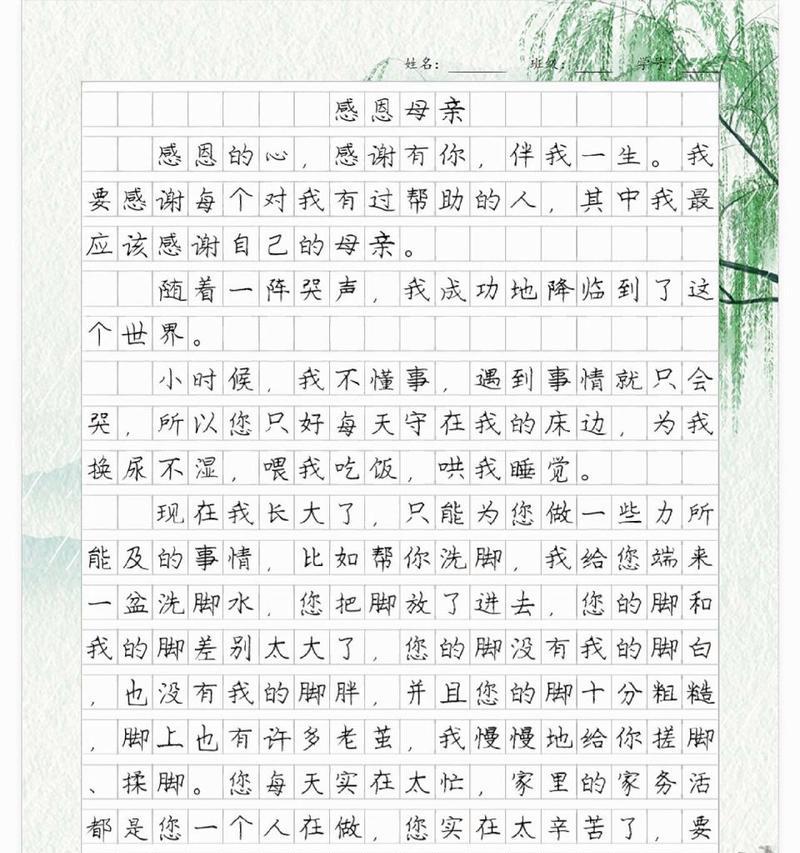 姓名：
班级：
学号：
感恩母亲
感恩的心，感谢有你，伴我一生。我
要感谢每个对我有过帮助的人，其中我最
应该感谢自己的母亲。
随着一阵哭声，我成功地降临到了这
个世界。
小时候，我不懂事，遇到事情就只会
哭，所以您只好每天守在我的床边，为我
换尿不湿，喂我吃饭，哄我睡觉。
现在我长大了，只能为您做一些力所
能及的事情，比如帮你洗脚，我给您端来
一盆洗脚水，您把脚放了进去，您的脚和
我的脚差别太大了，您的脚没有我的脚白
，也没有我的脚胖，并且您的脚十分粗糙
，脚上也有许多老茧，我慢慢地给你搓脚
、揉脚。您每天实在太忙，家里的家务活
都是您一个人在做，您实在太辛苦了，要